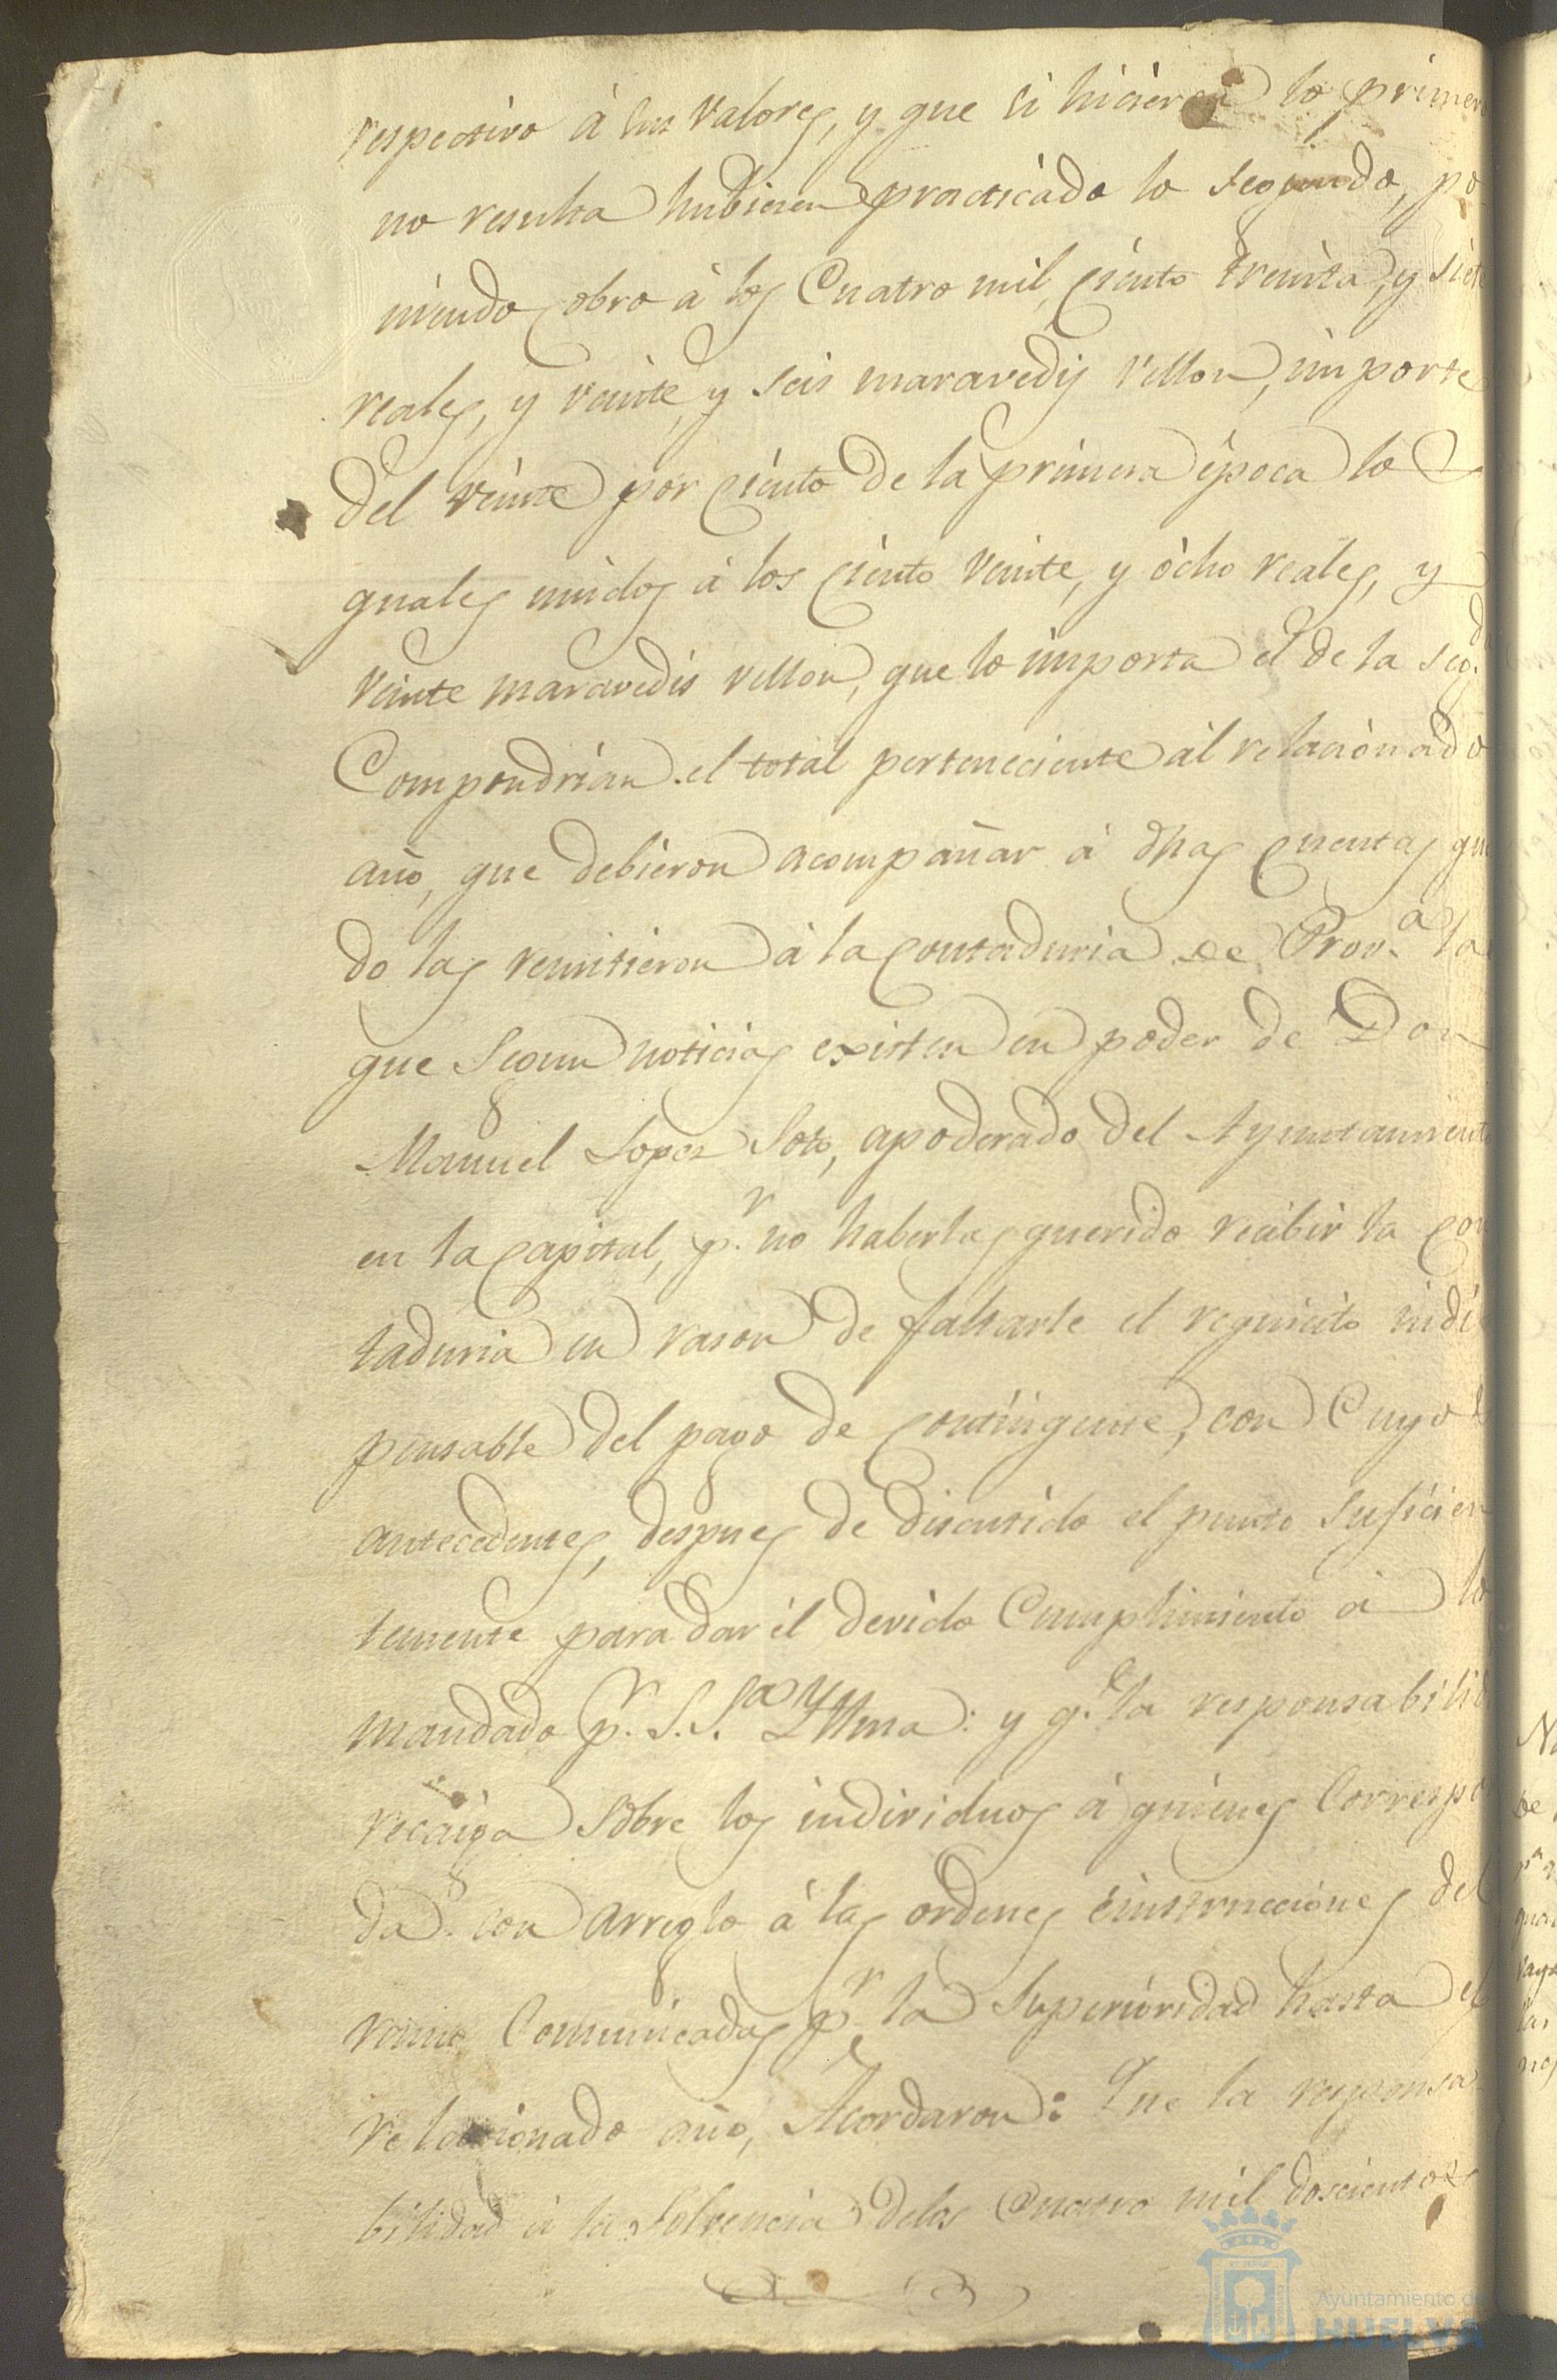 respectivo á sus valores, y que si hicieron lo primer
no resulta hubiesen practicado lo segundo, po
niendo cobro à los Cuatro mil, ciento treinta, y siete
reales, y veinte, y seis maravedis vellon, importe
del veinte por ciento de la primera época lo
quales unidos á los ciento veinte, y ócho reales, y
veinte maravedis vellon, que lo importa el de la seg.da
Compondrian el total perteneciente ál relacionado
año, que debieron acompañar á dhas Cuentas qu
do las remitieron á la Contaduria de Prov.a la
que segun noticias existen en poder de Don
Manuel Lopez Soto, apoderado del Ayuntamiento
en la Capital, p.r no haberlas querido recibir la Con
taduria en rason de faltarle el requisito indi
pensable del pago de Contingente, con Cuyo
antecedentes, despues de discutido el punto suficien
temente para dar él devido Cumplimiento á lo
mandado p.r S.S.a Yllma: y q.e la responsabilid
recaiga sobre los individuos á quienes Correspo
da con arreglo á las ordenes éinstrucciones del
ramo Comunicadas p.r la Superioridad hasta el
relacionado año, Acordaron: Que la responsa
bilidad á la Solvencia delos Cuatro mil doscientos
Ayuntamiento de
HUELVA